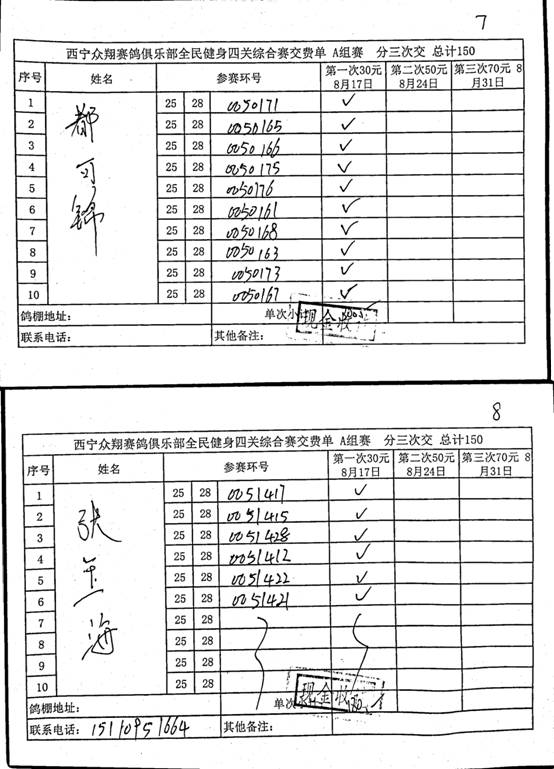 7
西宁众翔赛鸽俱乐部全民健身四关综合赛交费单 A组赛 分三次交 总计150
序号 姓名 参赛环号 第一次30元 8月17日 第二次50元 8月24日 第三次70元 8月31日
都可锦
1 25 28 0050171 ✓
2 25 28 0050165 ✓
3 25 28 0050166 ✓
4 25 28 0050175 ✓
5 25 28 0050176 ✓
6 25 28 0050161 ✓
7 25 28 0050168 ✓
8 25 28 0050163 ✓
9 25 28 0050173 ✓
10 25 28 0050167 ✓
鸽棚地址： 单次小计 现金收
联系电话： 其他备注：
8
西宁众翔赛鸽俱乐部全民健身四关综合赛交费单 A组赛 分三次交 总计150
序号 姓名 参赛环号 第一次30元 8月17日 第二次50元 8月24日 第三次70元 8月31日
张 海
1 25 28 0051417 ✓
2 25 28 0051415 ✓
3 25 28 0051428 ✓
4 25 28 0051412 ✓
5 25 28 0051422 ✓
6 25 28 0051421 ✓
7 25 28
8 25 28
9 25 28
10 25 28
鸽棚地址： 单次 现金收 180
联系电话：15110951664 其他备注：